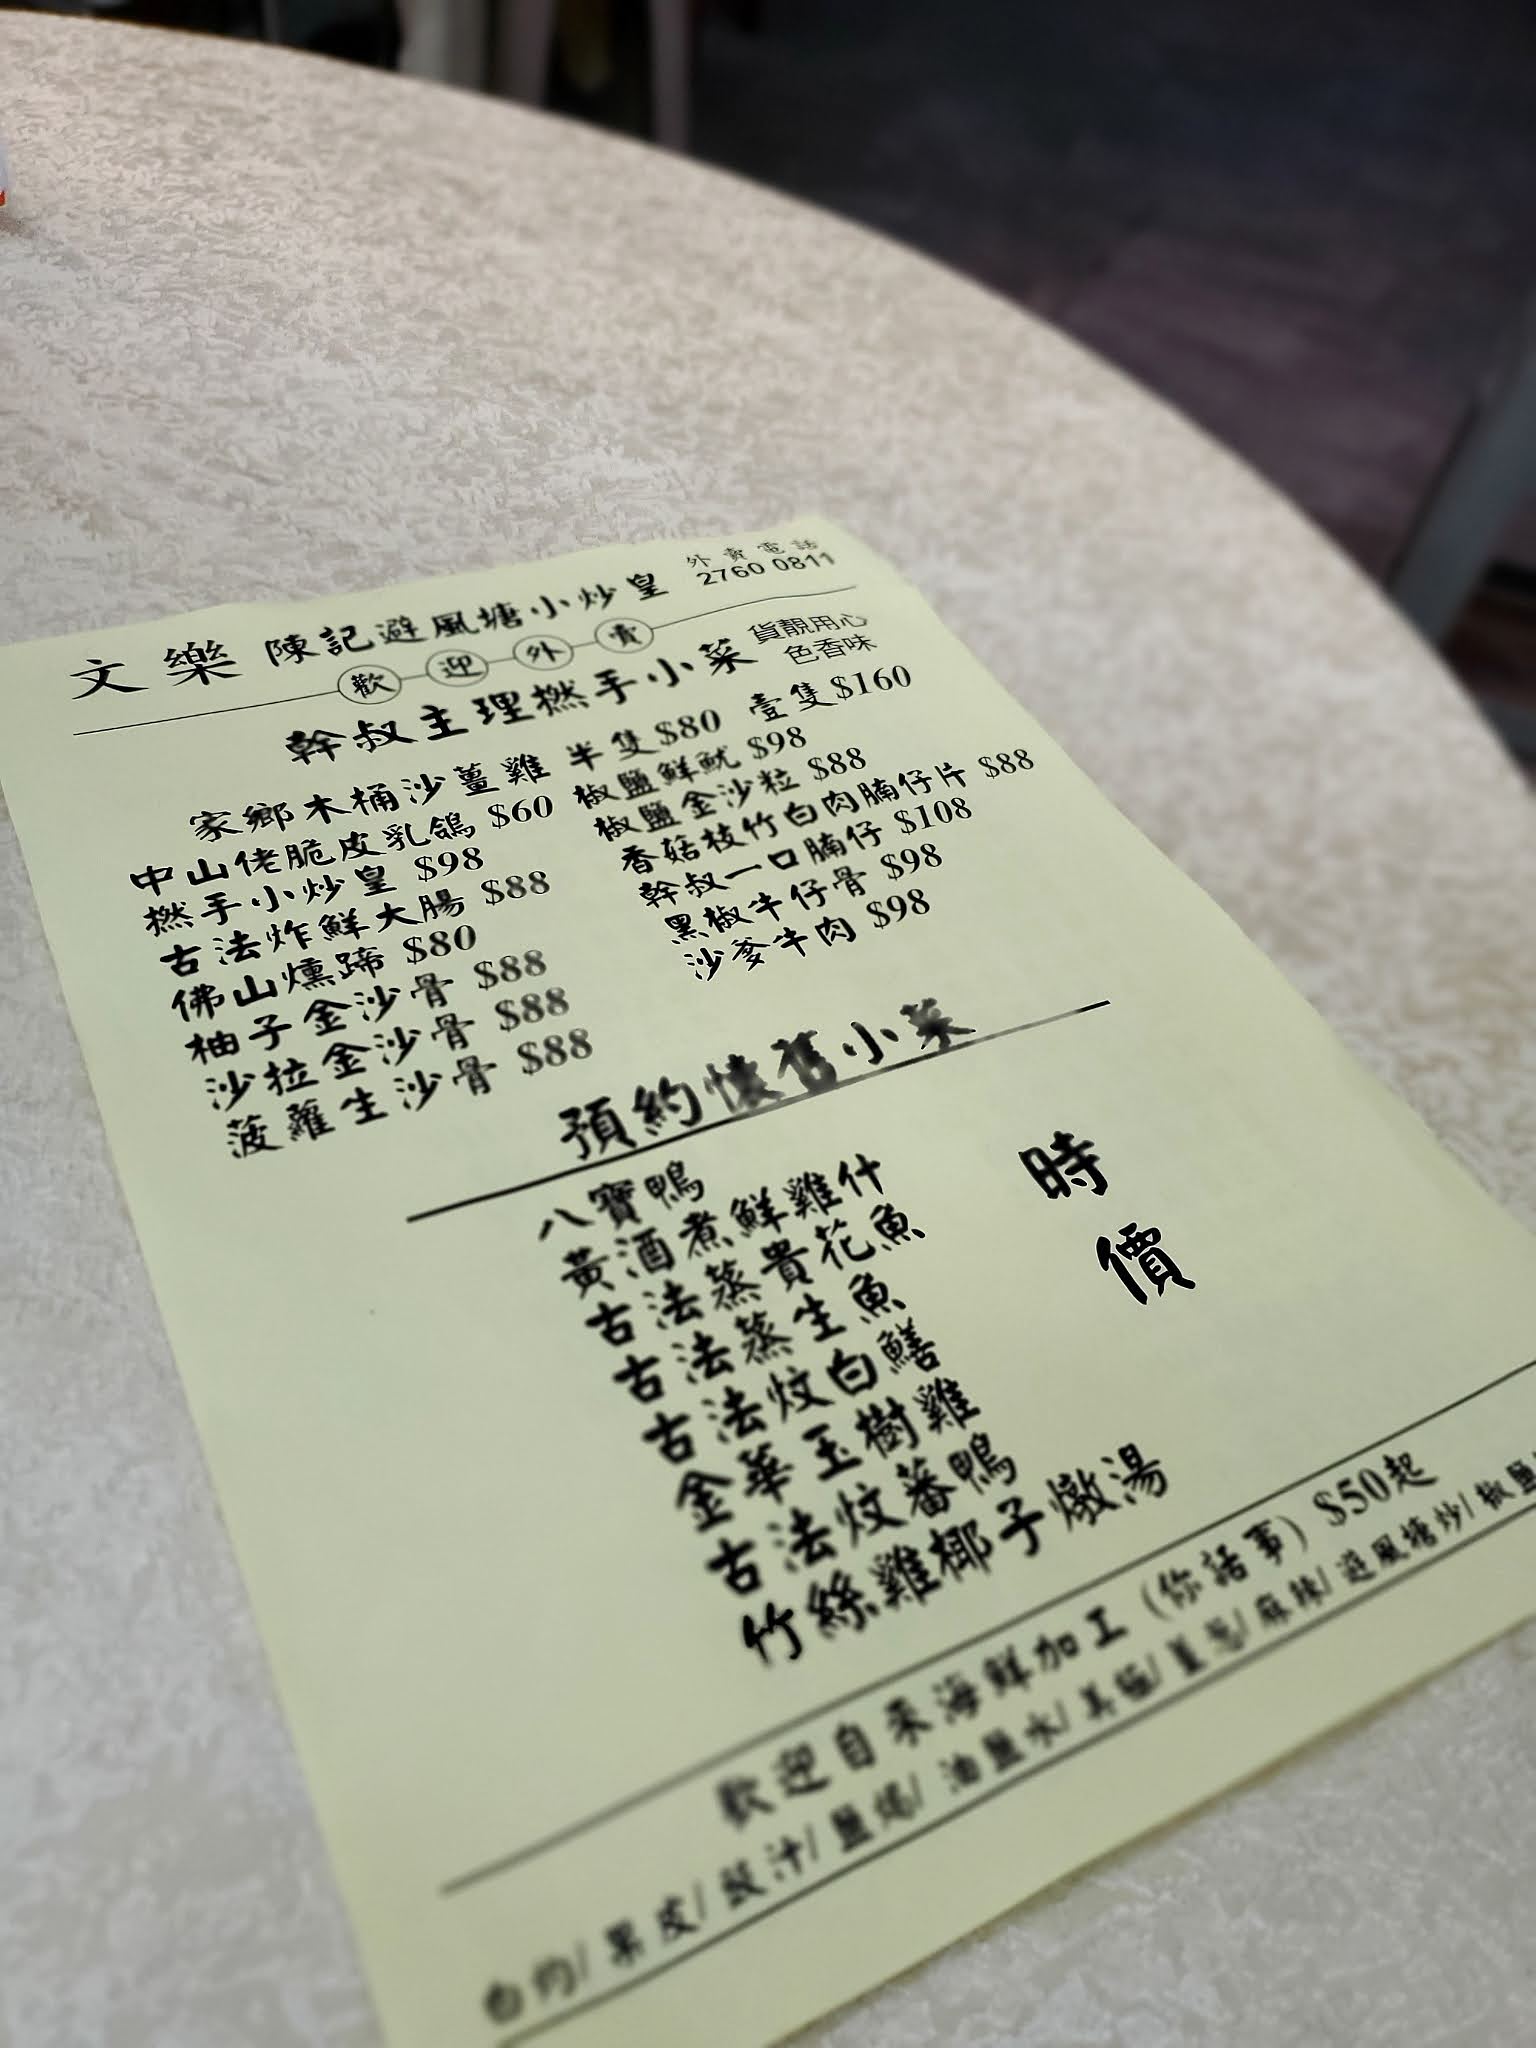 外賣電話
2760 0811
文樂 陳記避風塘小炒皇
歡迎外賣
貨靚用心
色香味
幹叔主理撚手小菜
家鄉木桶沙薑雞 半隻$80 壹隻$160
中山佬脆皮乳鴿 $60
撚手小炒皇 $98
古法炸鮮大腸 $88
佛山燻蹄 $80
柚子金沙骨 $88
沙拉金沙骨 $88
菠蘿生沙骨 $88
椒鹽鮮魷 $98
椒鹽金沙粒 $88
香菇枝竹白肉腩仔片 $88
幹叔一口腩仔 $108
黑椒牛仔骨 $98
沙爹牛肉 $98
預約懷舊小菜
八寶鴨
黃酒煮鮮雞什
古法蒸貴花魚
古法蒸生魚
古法炆白鱔
金華玉樹雞
古法炆蕃鴨
竹絲雞椰子燉湯
時價
歡迎自來海鮮加工(你話事) $50起
白灼/果皮/豉汁/鹽焗/油鹽水/美極/薑蔥/麻辣/避風塘炒/椒鹽